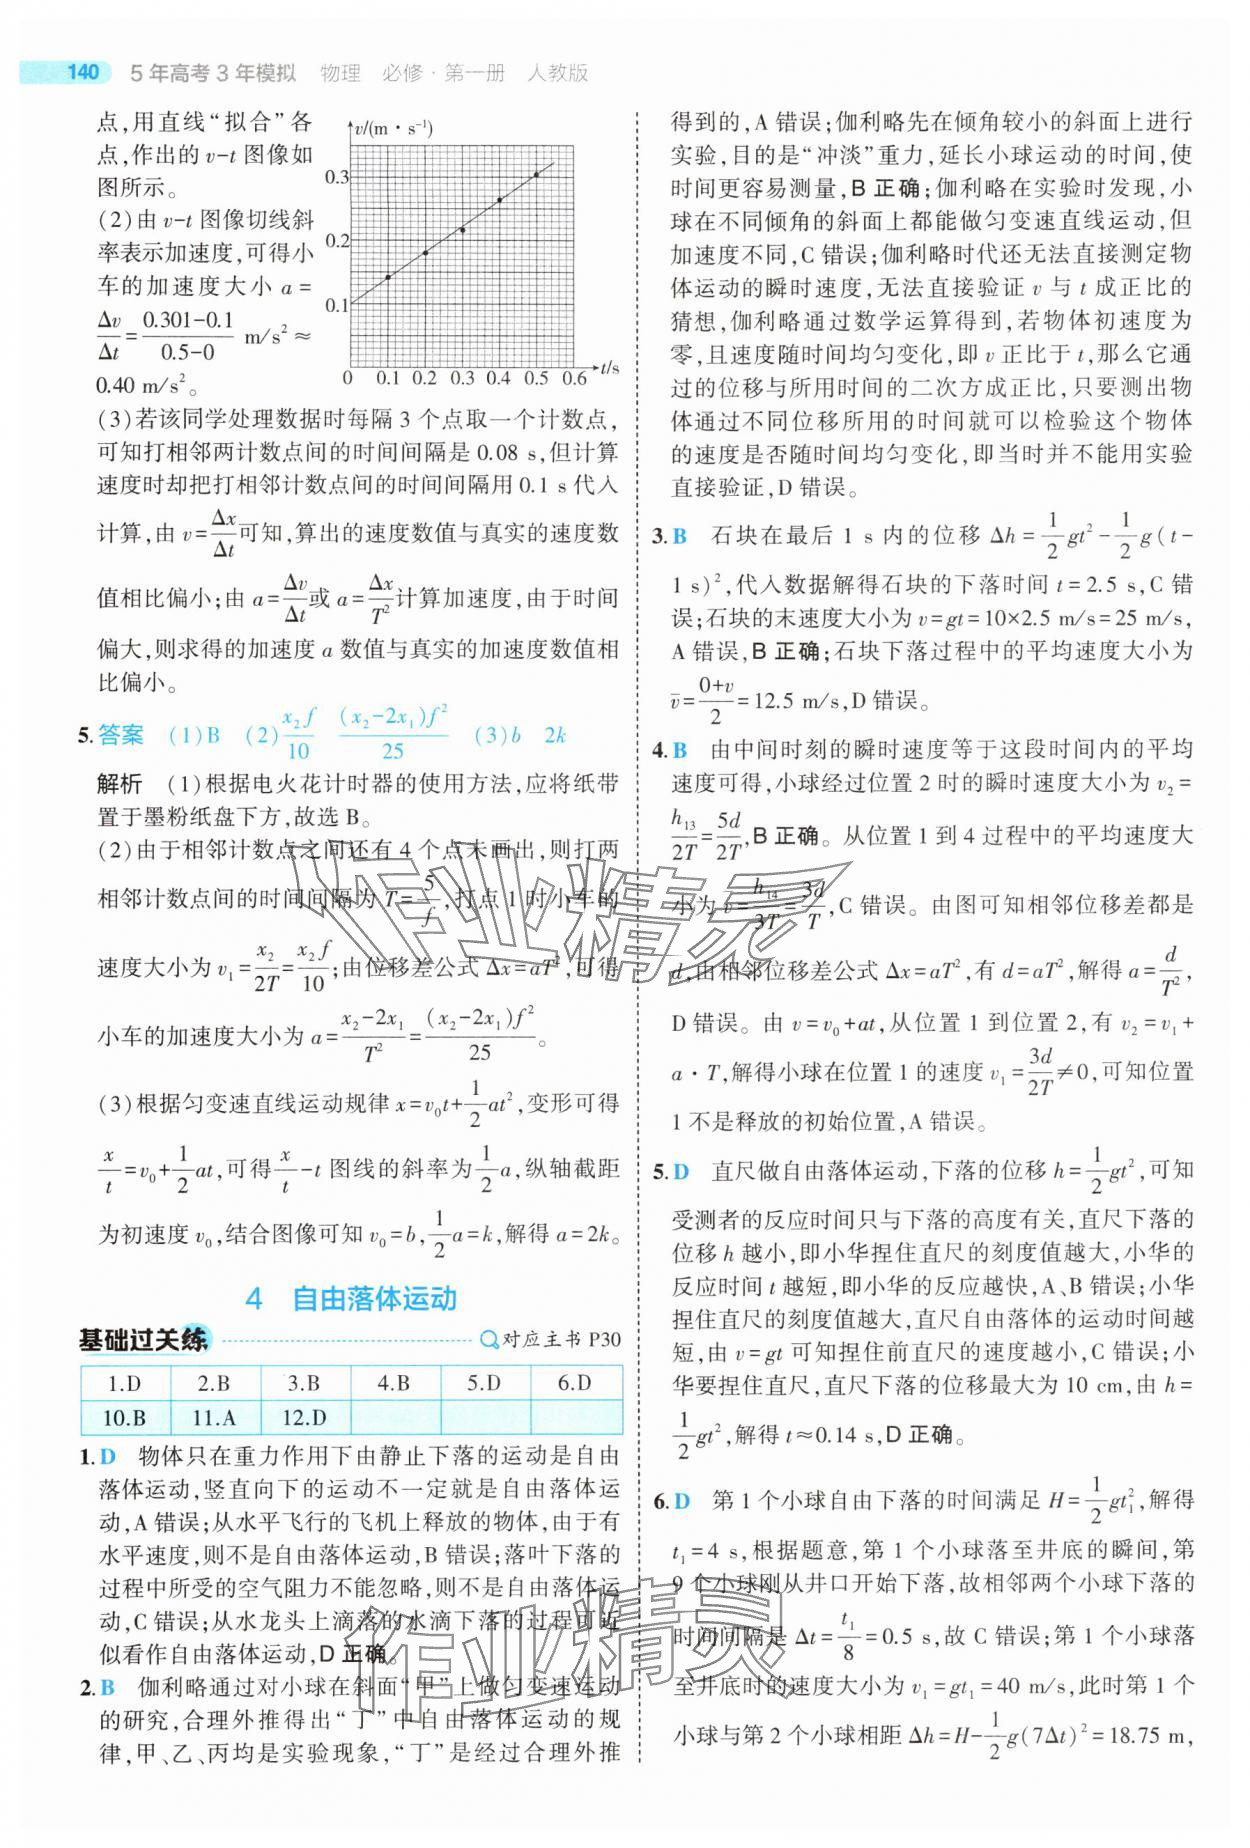 140 5年高考3年模拟 物理 必修·第一册 人教版
点,用直线“拟合”各
点,作出的 v-t 图像如
图所示。
(2)由 v-t 图像切线斜
率表示加速度,可得小
车的加速度大小 a=
Δv/Δt=(0.301-0.1)/(0.5-0) m/s²≈
0.40 m/s²。
v/(m·s⁻¹)
0.3
0.2
0.1
0 0.1 0.2 0.3 0.4 0.5 0.6 t/s
(3)若该同学处理数据时每隔 3 个点取一个计数点,
可知打相邻两计数点间的时间间隔是 0.08 s,但计算
速度时却把打相邻计数点间的时间间隔用 0.1 s 代入
计算,由 v=Δx/Δt可知,算出的速度数值与真实的速度数
值相比偏小;由 a=Δv/Δt或 a=Δx/T²计算加速度,由于时间
偏大,则求得的加速度 a 数值与真实的加速度数值相
比偏小。
5.答案 (1)B (2)x₂f/10 (x₂-2x₁)f²/25 (3)b 2k
解析 (1)根据电火花计时器的使用方法,应将纸带
置于墨粉纸盘下方,故选 B。
(2)由于相邻计数点之间还有 4 个点未画出,则打两
相邻计数点间的时间间隔为 T=5/f,打点 1 时小车的
速度大小为 v₁=x₂/2T=x₂f/10;由位移差公式 Δx=aT²,可得
小车的加速度大小为 a=(x₂-2x₁)/T²=(x₂-2x₁)f²/25。
(3)根据匀变速直线运动规律 x=v₀t+1/2at²,变形可得
x/t=v₀+1/2at,可得x/t-t 图线的斜率为1/2a,纵轴截距
为初速度 v₀,结合图像可知 v₀=b,1/2a=k,解得 a=2k。
4 自由落体运动
基础过关练 对应主书 P30
1.D 2.B 3.B 4.B 5.D 6.D
10.B 11.A 12.D
1.D 物体只在重力作用下由静止下落的运动是自由
落体运动,竖直向下的运动不一定就是自由落体运
动,A 错误;从水平飞行的飞机上释放的物体,由于有
水平速度,则不是自由落体运动,B 错误;落叶下落的
过程中所受的空气阻力不能忽略,则不是自由落体运
动,C 错误;从水龙头上滴落的水滴下落的过程可近
似看作自由落体运动,D 正确。
2.B 伽利略通过对小球在斜面“甲”上做匀变速运动
的研究,合理外推得出“丁”中自由落体运动的规
律,甲、乙、丙均是实验现象,“丁”是经过合理外推
得到的,A 错误;伽利略先在倾角较小的斜面上进行
实验,目的是“冲淡”重力,延长小球运动的时间,使
时间更容易测量,B 正确;伽利略在实验时发现,小
球在不同倾角的斜面上都能做匀变速直线运动,但
加速度不同,C 错误;伽利略时代还无法直接测定物
体运动的瞬时速度,无法直接验证 v 与 t 成正比的
猜想,伽利略通过数学运算得到,若物体初速度为
零,且速度随时间均匀变化,即 v 正比于 t,那么它通
过的位移与所用时间的二次方成正比,只要测出物
体通过不同位移所用的时间就可以检验这个物体
的速度是否随时间均匀变化,即当时并不能用实验
直接验证,D 错误。
3.B 石块在最后 1 s 内的位移 Δh=1/2gt²-1/2g(t-
1 s)²,代入数据解得石块的下落时间 t=2.5 s,C 错
误;石块的末速度大小为 v=gt=10×2.5 m/s=25 m/s,
A 错误,B 正确;石块下落过程中的平均速度大小为
v̄=(0+v)/2=12.5 m/s,D 错误。
4.B 由中间时刻的瞬时速度等于这段时间内的平均
速度可得,小球经过位置 2 时的瞬时速度大小为 v₂=
h₁₃/2T=5d/2T,B 正确。从位置 1 到 4 过程中的平均速度大
小为 v̄=h₁₄/3T=3d/T,C 错误。由图可知相邻位移差都是
d,由相邻位移差公式 Δx=aT²,有 d=aT²,解得 a=d/T²,
D 错误。由 v=v₀+at,从位置 1 到位置 2,有 v₂=v₁+
a·T,解得小球在位置 1 的速度 v₁=3d/2T≠0,可知位置
1 不是释放的初始位置,A 错误。
5.D 直尺做自由落体运动,下落的位移 h=1/2gt²,可知
受测者的反应时间只与下落的高度有关,直尺下落的
位移 h 越小,即小华捏住直尺的刻度值越大,小华的
反应时间 t 越短,即小华的反应越快,A、B 错误;小华
捏住直尺的刻度值越大,直尺自由落体的运动时间越
短,由 v=gt 可知捏住前直尺的速度越小,C 错误;小
华要捏住直尺,直尺下落的位移最大为 10 cm,由 h=
1/2gt²,解得 t≈0.14 s,D 正确。
6.D 第 1 个小球自由下落的时间满足 H=1/2gt₁²,解得
t₁=4 s,根据题意,第 1 个小球落至井底的瞬间,第
9 个小球刚从井口开始下落,故相邻两个小球下落的
时间间隔是 Δt=t₁/8=0.5 s,故 C 错误;第 1 个小球落
至井底时的速度大小为 v₁=gt₁=40 m/s,此时第 1 个
小球与第 2 个小球相距 Δh=H-1/2g(7Δt)²=18.75 m,
作业精灵
作业精灵